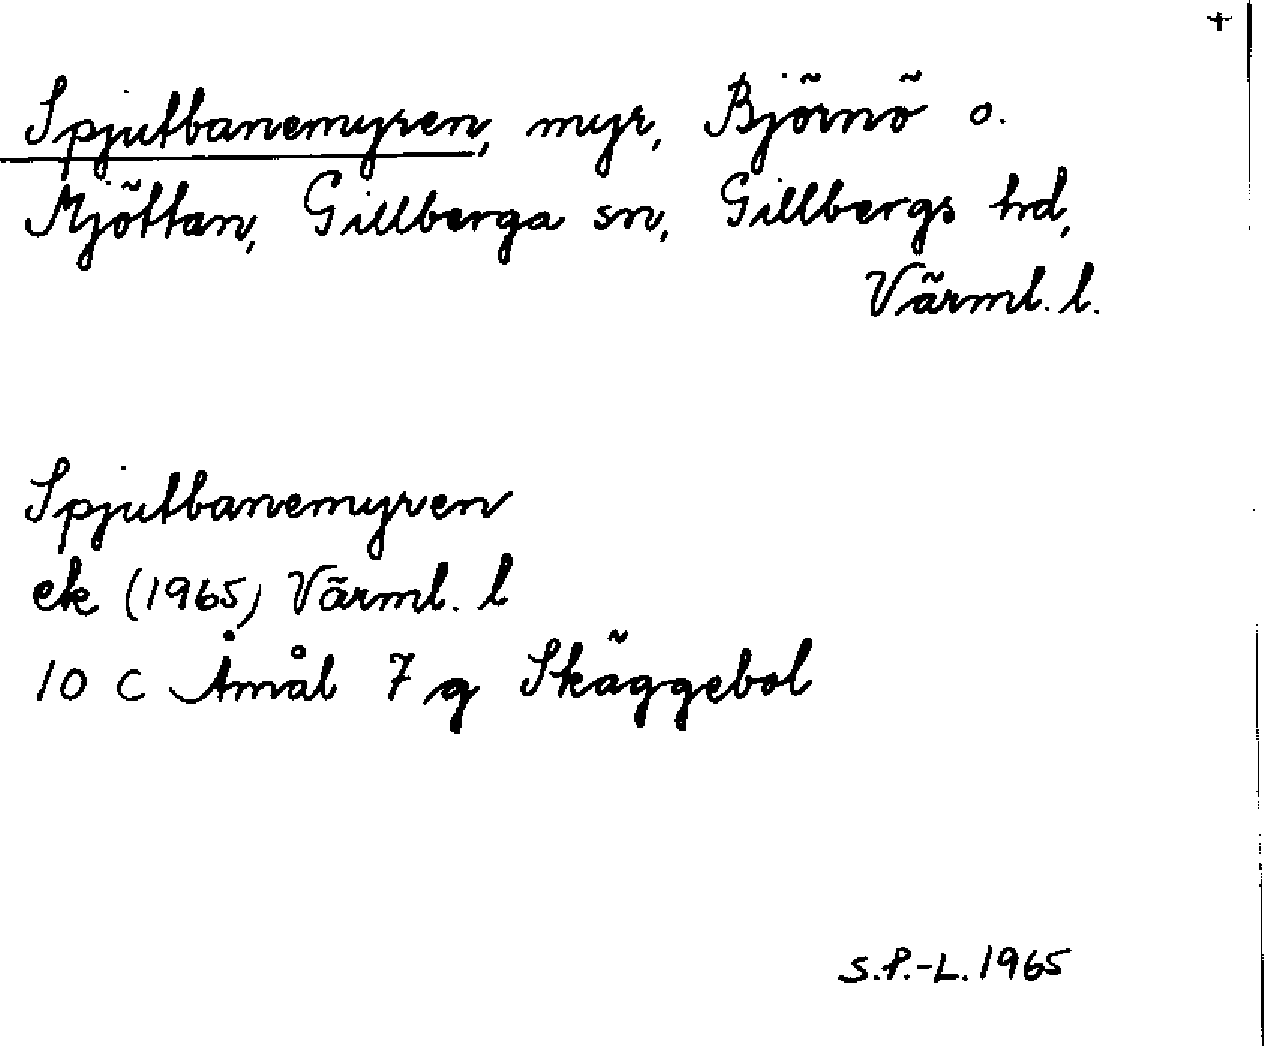 +
Spjutbanemyren, myr, Björnö o.
Mjöttan, Gillberga sn, Gillbergs hrd,
Värml. l.
Spjutbanemyren
ek (1965) Värml. l
10 C Åmål 7 g Skäggebol
S.P.-L. 1965